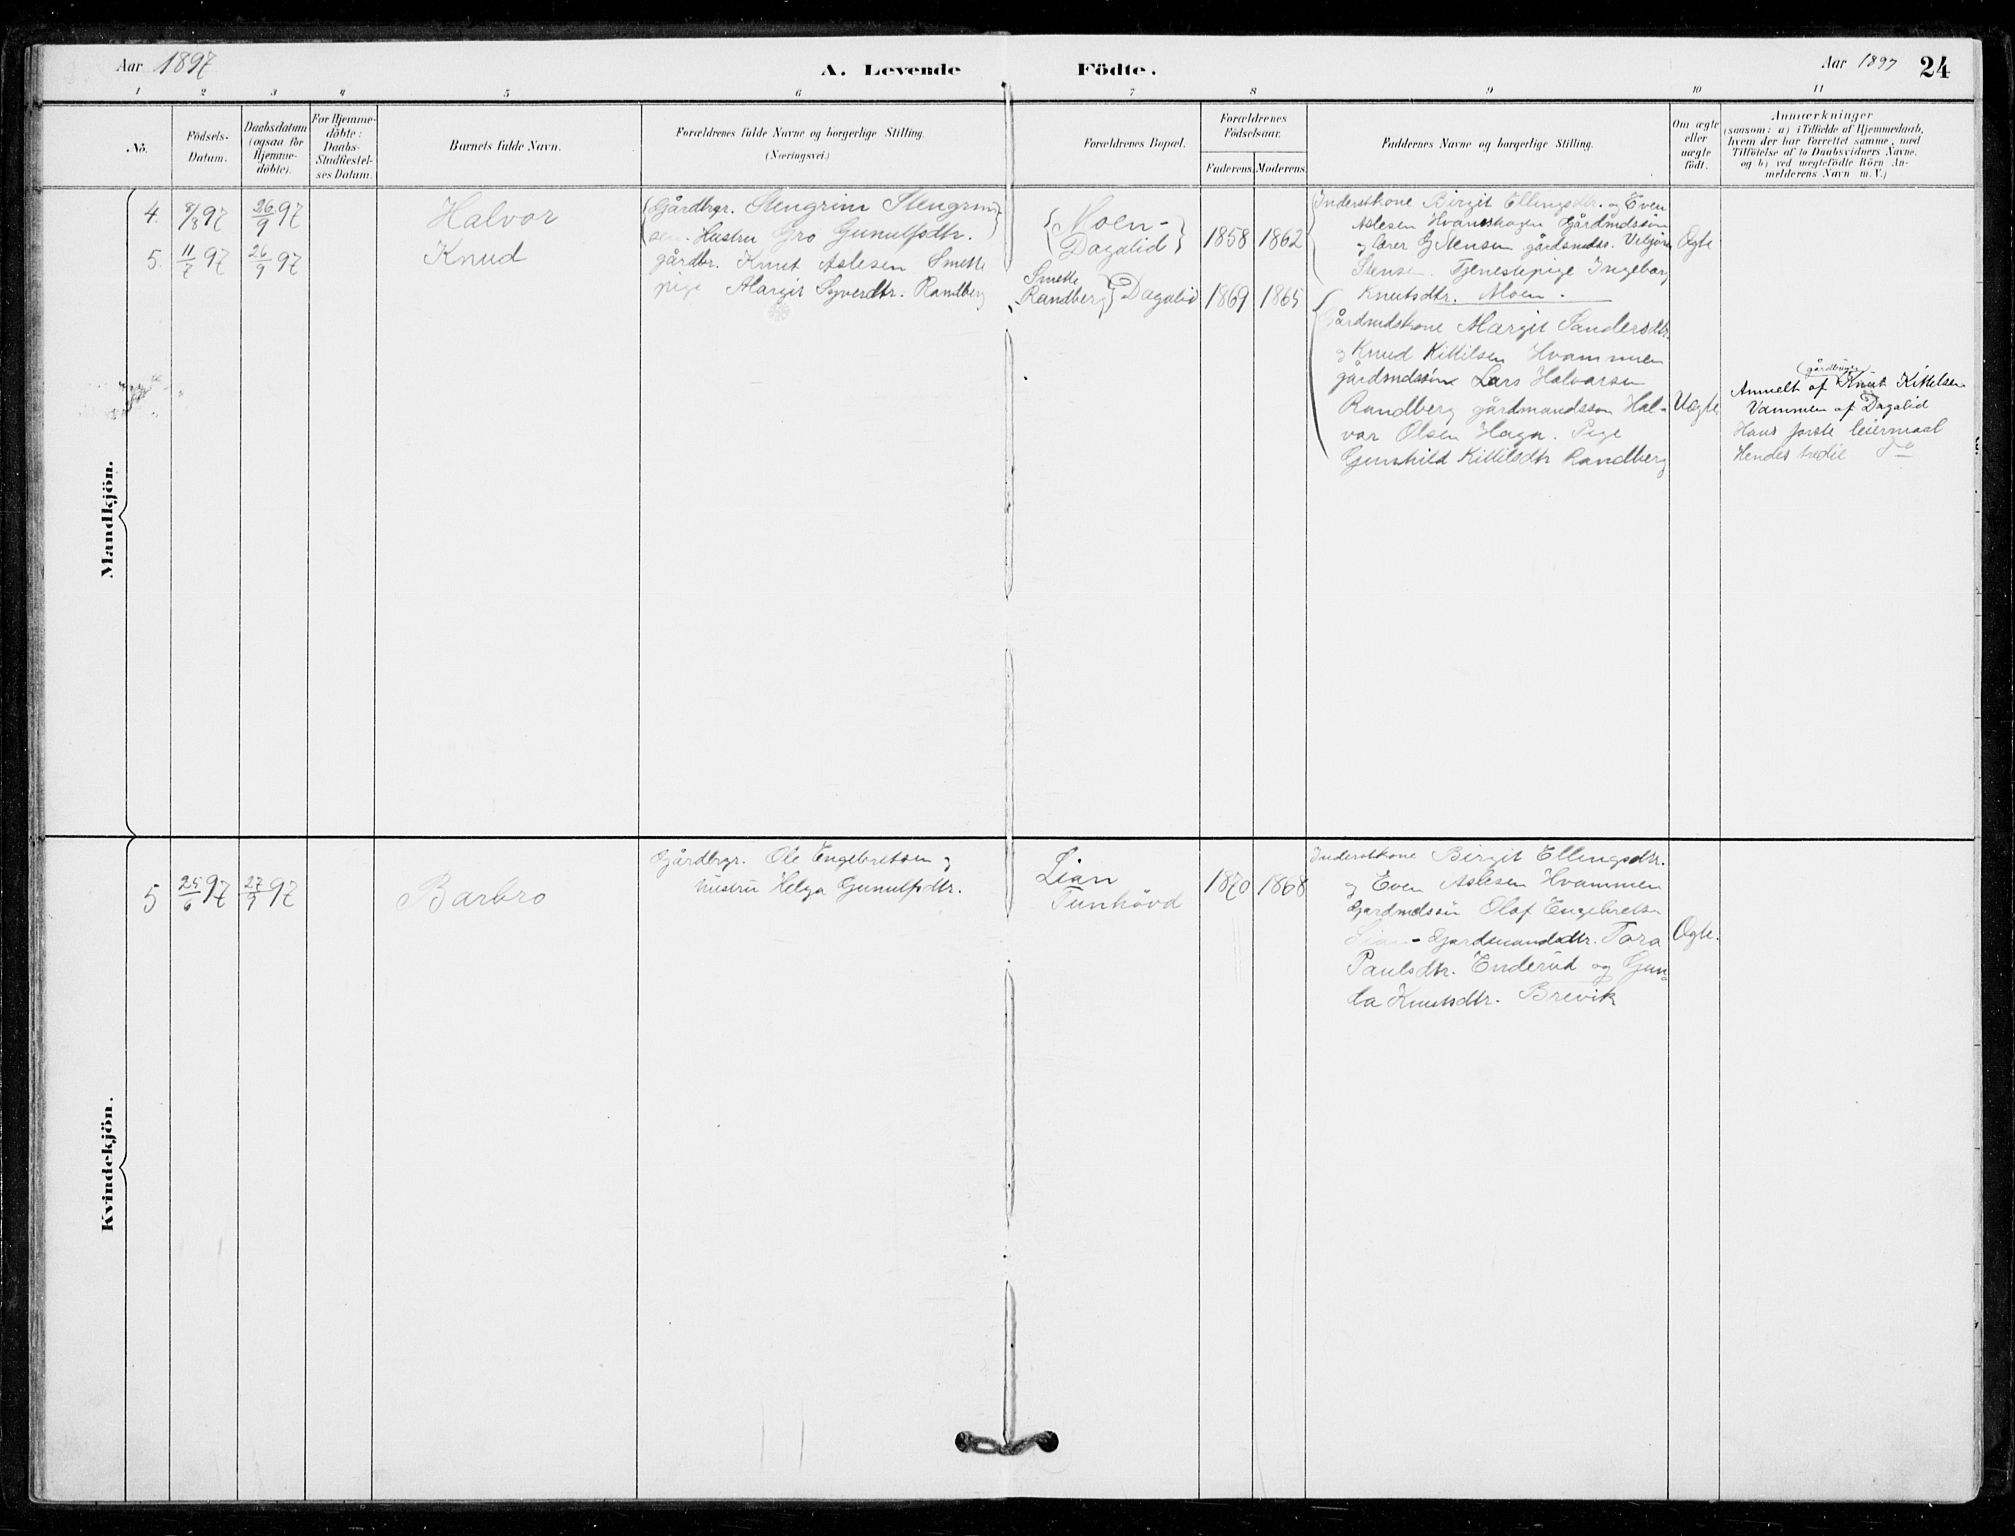 Aar 1897
A. Levende Födte.
Aar 1897 24
1 2 3 4 5 6 7 8 9 10 11
No.
Födsels-
Datum.
Daabsdatum
(ogsaa for
Hjemme-
döbte).
For Hjemme-
döbte:
Daabs-
Stadfæstel-
ses Datum.
Barnets fulde Navn.
Forældrenes fulde Navne og borgerlige Stilling.
(Næringsvei.)
Forældrenes Bopæl.
Forældrenes
Födselsaar.
Faderens. Moderens.
Faddernes Navne og borgerlige Stilling.
Om ægte
eller
uægte
födt.
Anmærkninger
(saasom: a) i Tilfælde af Hjemmedaab,
hvem der har forrettet samme, med
Tilföielse af to Daabsvidners Navne.
og b) ved uægtefödte Börn An-
melderens Navn m. V.)
Mandkjön.
4. 8/8 97 26/9 97 Halvor
Gårdbrgr. Stengrim Stengrim-
sen. Hustru Gro Gunulfsdtr.
Moen-
Dagalid
1858 1862
Inderstkone Birgit Ellingsdtr. og Even
Aslesen Hvamshagen Gårdmdssön
og lærer G Stensen gårdsmds.
Stensen. Tjenestepige Ingeborg
Knutsdtr. Moen.
Ægte
5. 11/7 97 26/9 97 Knud
gårdbr. Knut Aslesen Smette
pige Margit Syverdtr. Randberg
Smette
Randberg Dagalid
1869 1865
Gårdmdskone Margit Sandersdtr.
og Knud Kittilsen Hvammen
gårdmdssön Lars Halvorsen
Randberg gårdmandssøn Hal-
vor Olsen Haga. Pige
Gunhild Kittilsdtr Randberg
Uægte
gårdbruger
Anmelt af Knut Kittelsen
Vammen af Dagalid
Hans förste leiermaal
Hendes tredie do
Kvindekjön.
5 25/6 97 27/9 97 Barbro
Gårdbrgr. Ole Engebretsen og
hustru Helga Gunulfsdtr.
Lian
Tunhövd
1870 1868
Inderstkone Birgit Ellingsdtr.
og Even Aslesen Hvammen
Gardmdssön Olaf Engebretsn
Lian - Gardmandsdtr. Tora
Paulsdtr. Enderud og Gun-
la Knutsdtr. Brevik
Ægte.